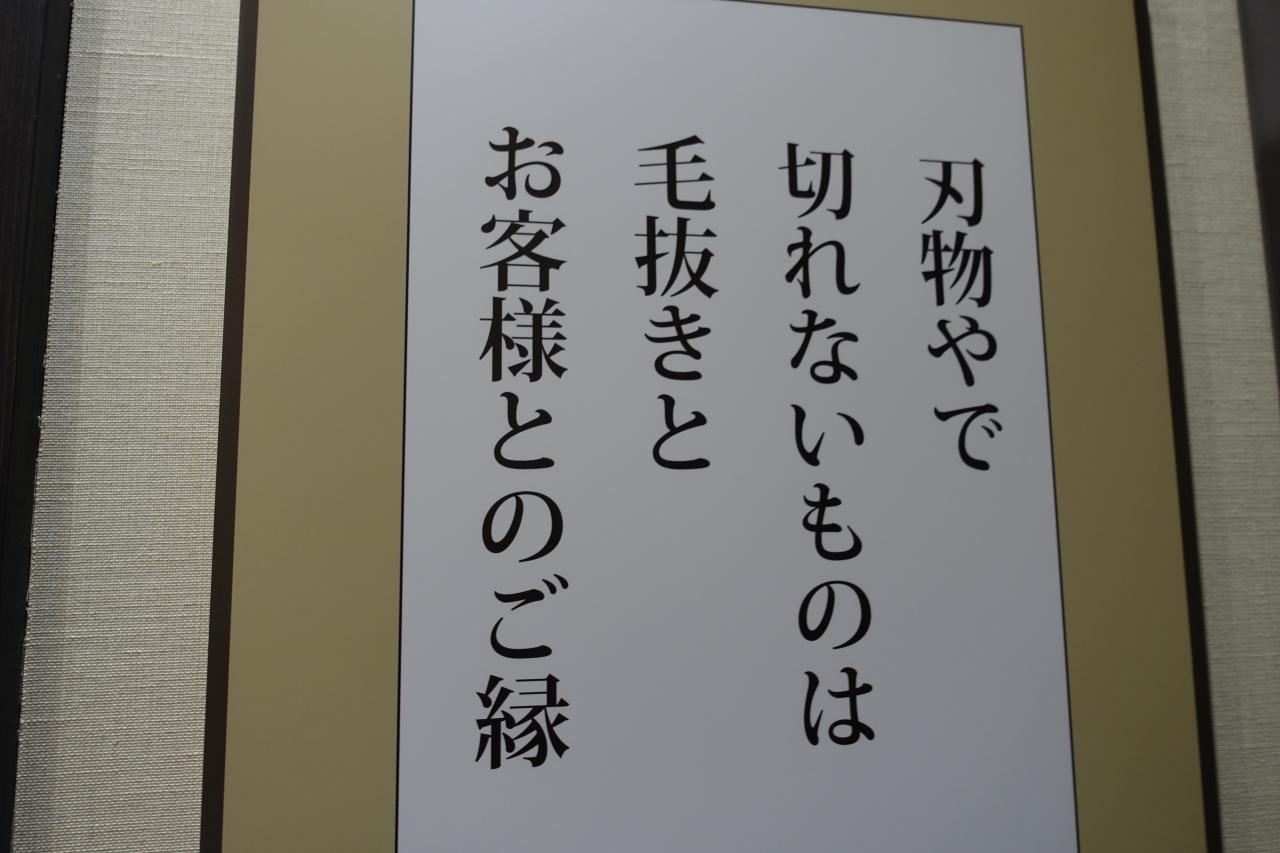 刃物やで
切れないものは
毛抜きと
お客様とのご縁